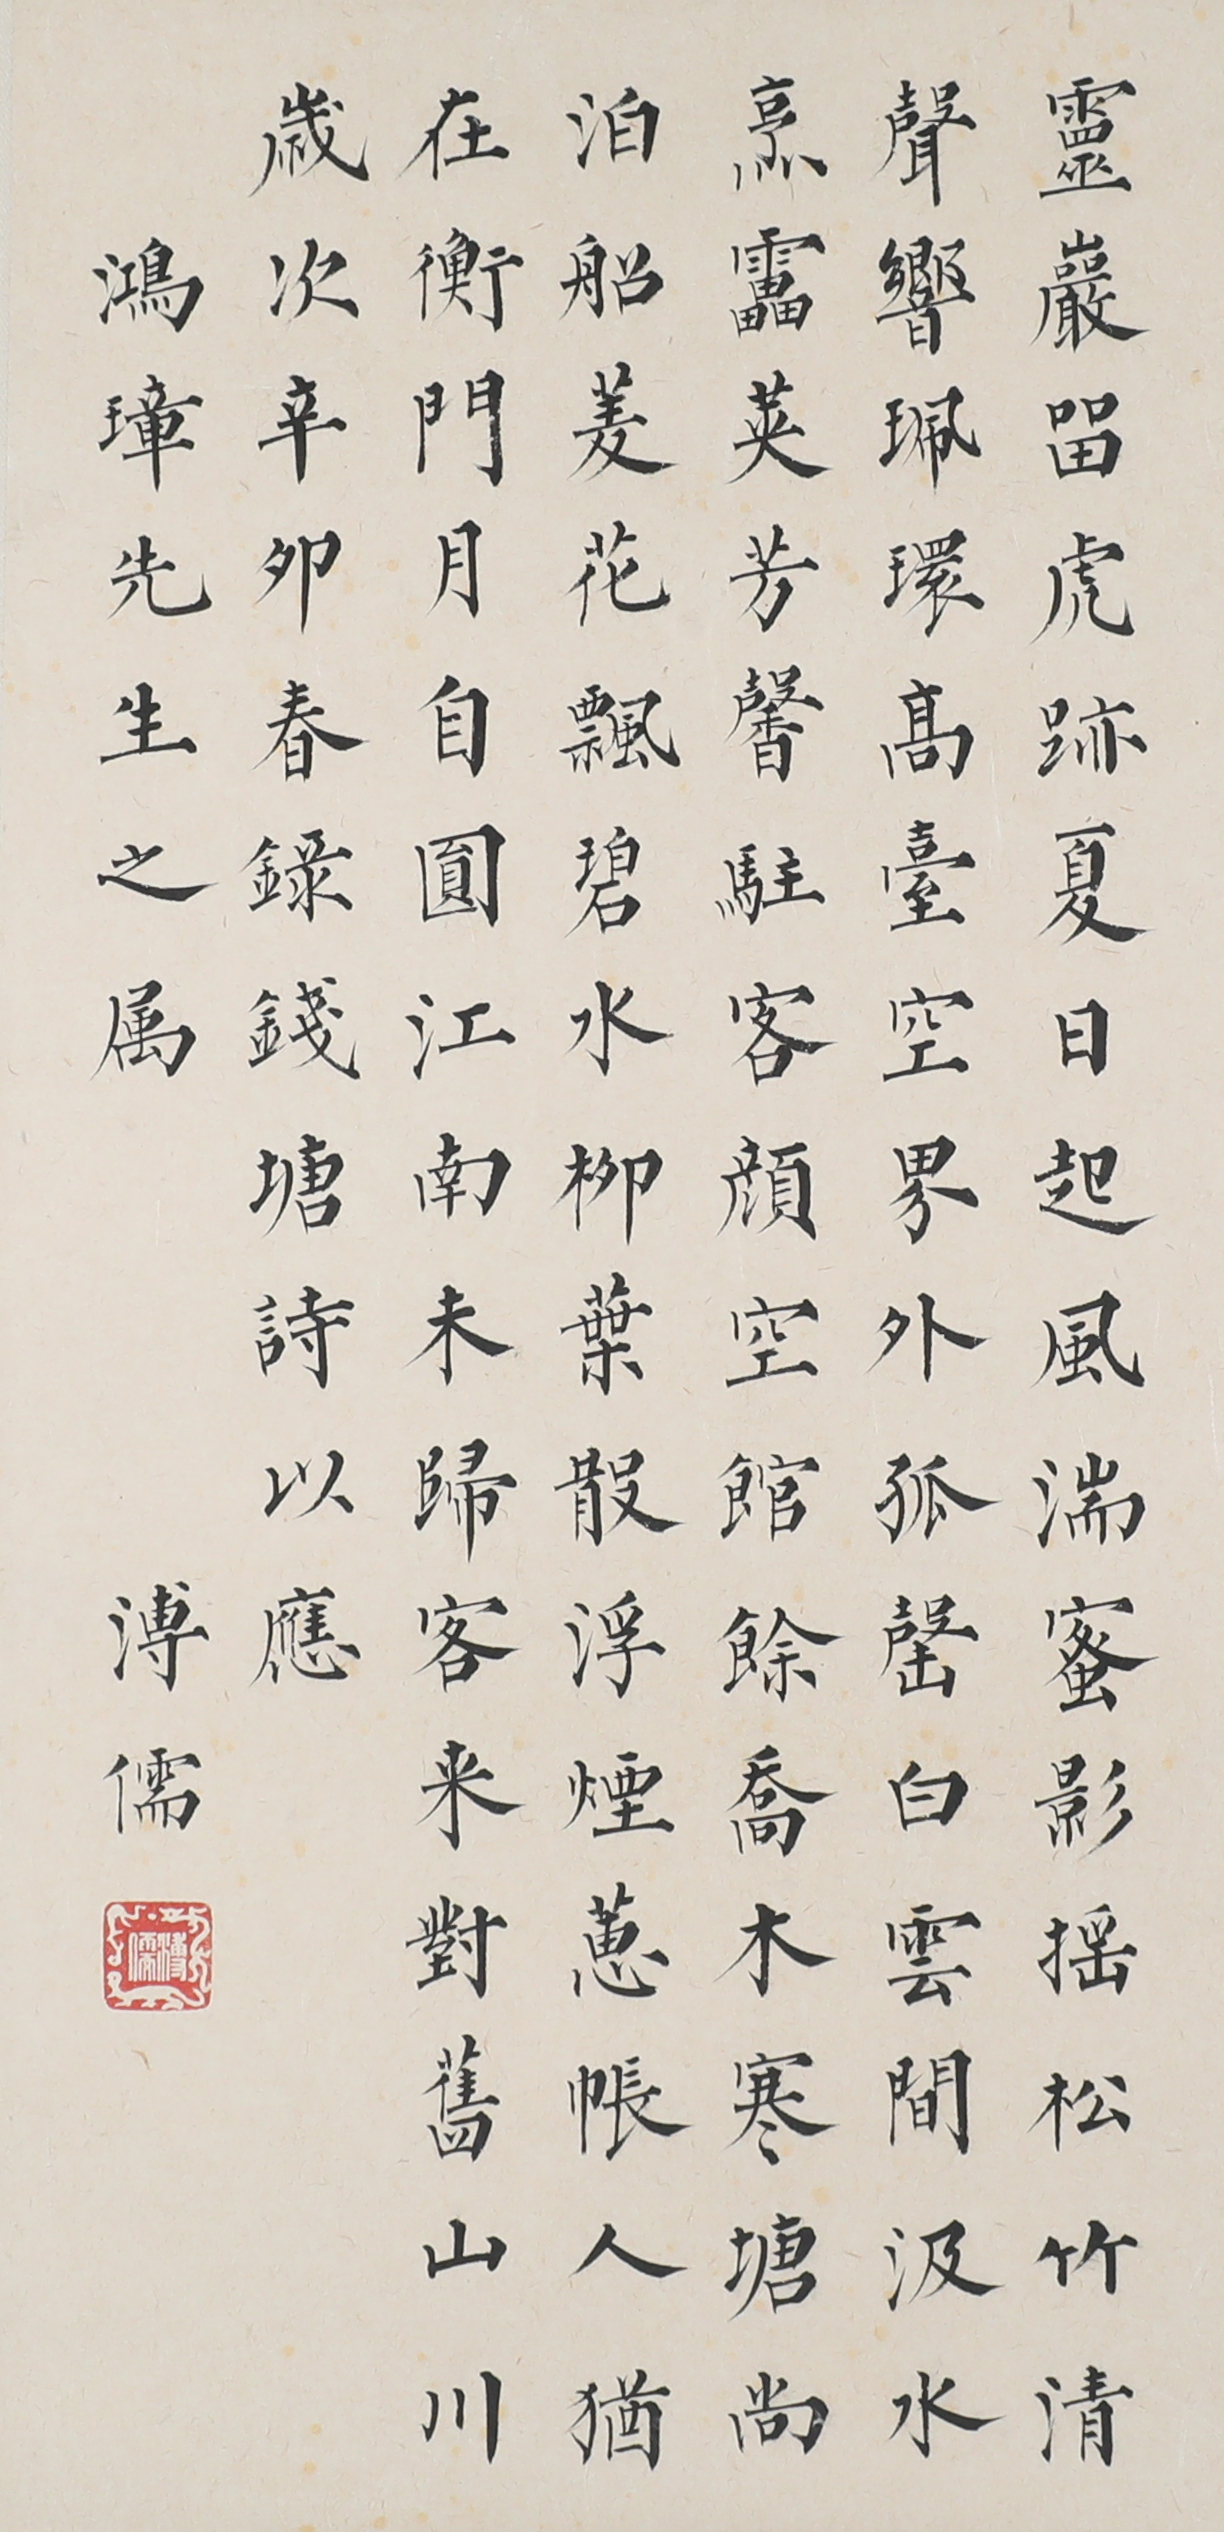 靈巖畱虎跡夏日起風湍蜜影搖松竹清
聲響珮環高臺空界外孤罄白雲間汲水
烹靁莢芳馨駐客顔空館餘喬木寒塘尚
泊船菱花飄碧水柳葉散浮煙蕙帳人猶
在衡門月自圓江南未歸客来對舊山川
歲次辛卯春錄錢塘詩以應
鴻璋先生之属
溥儒
溥儒